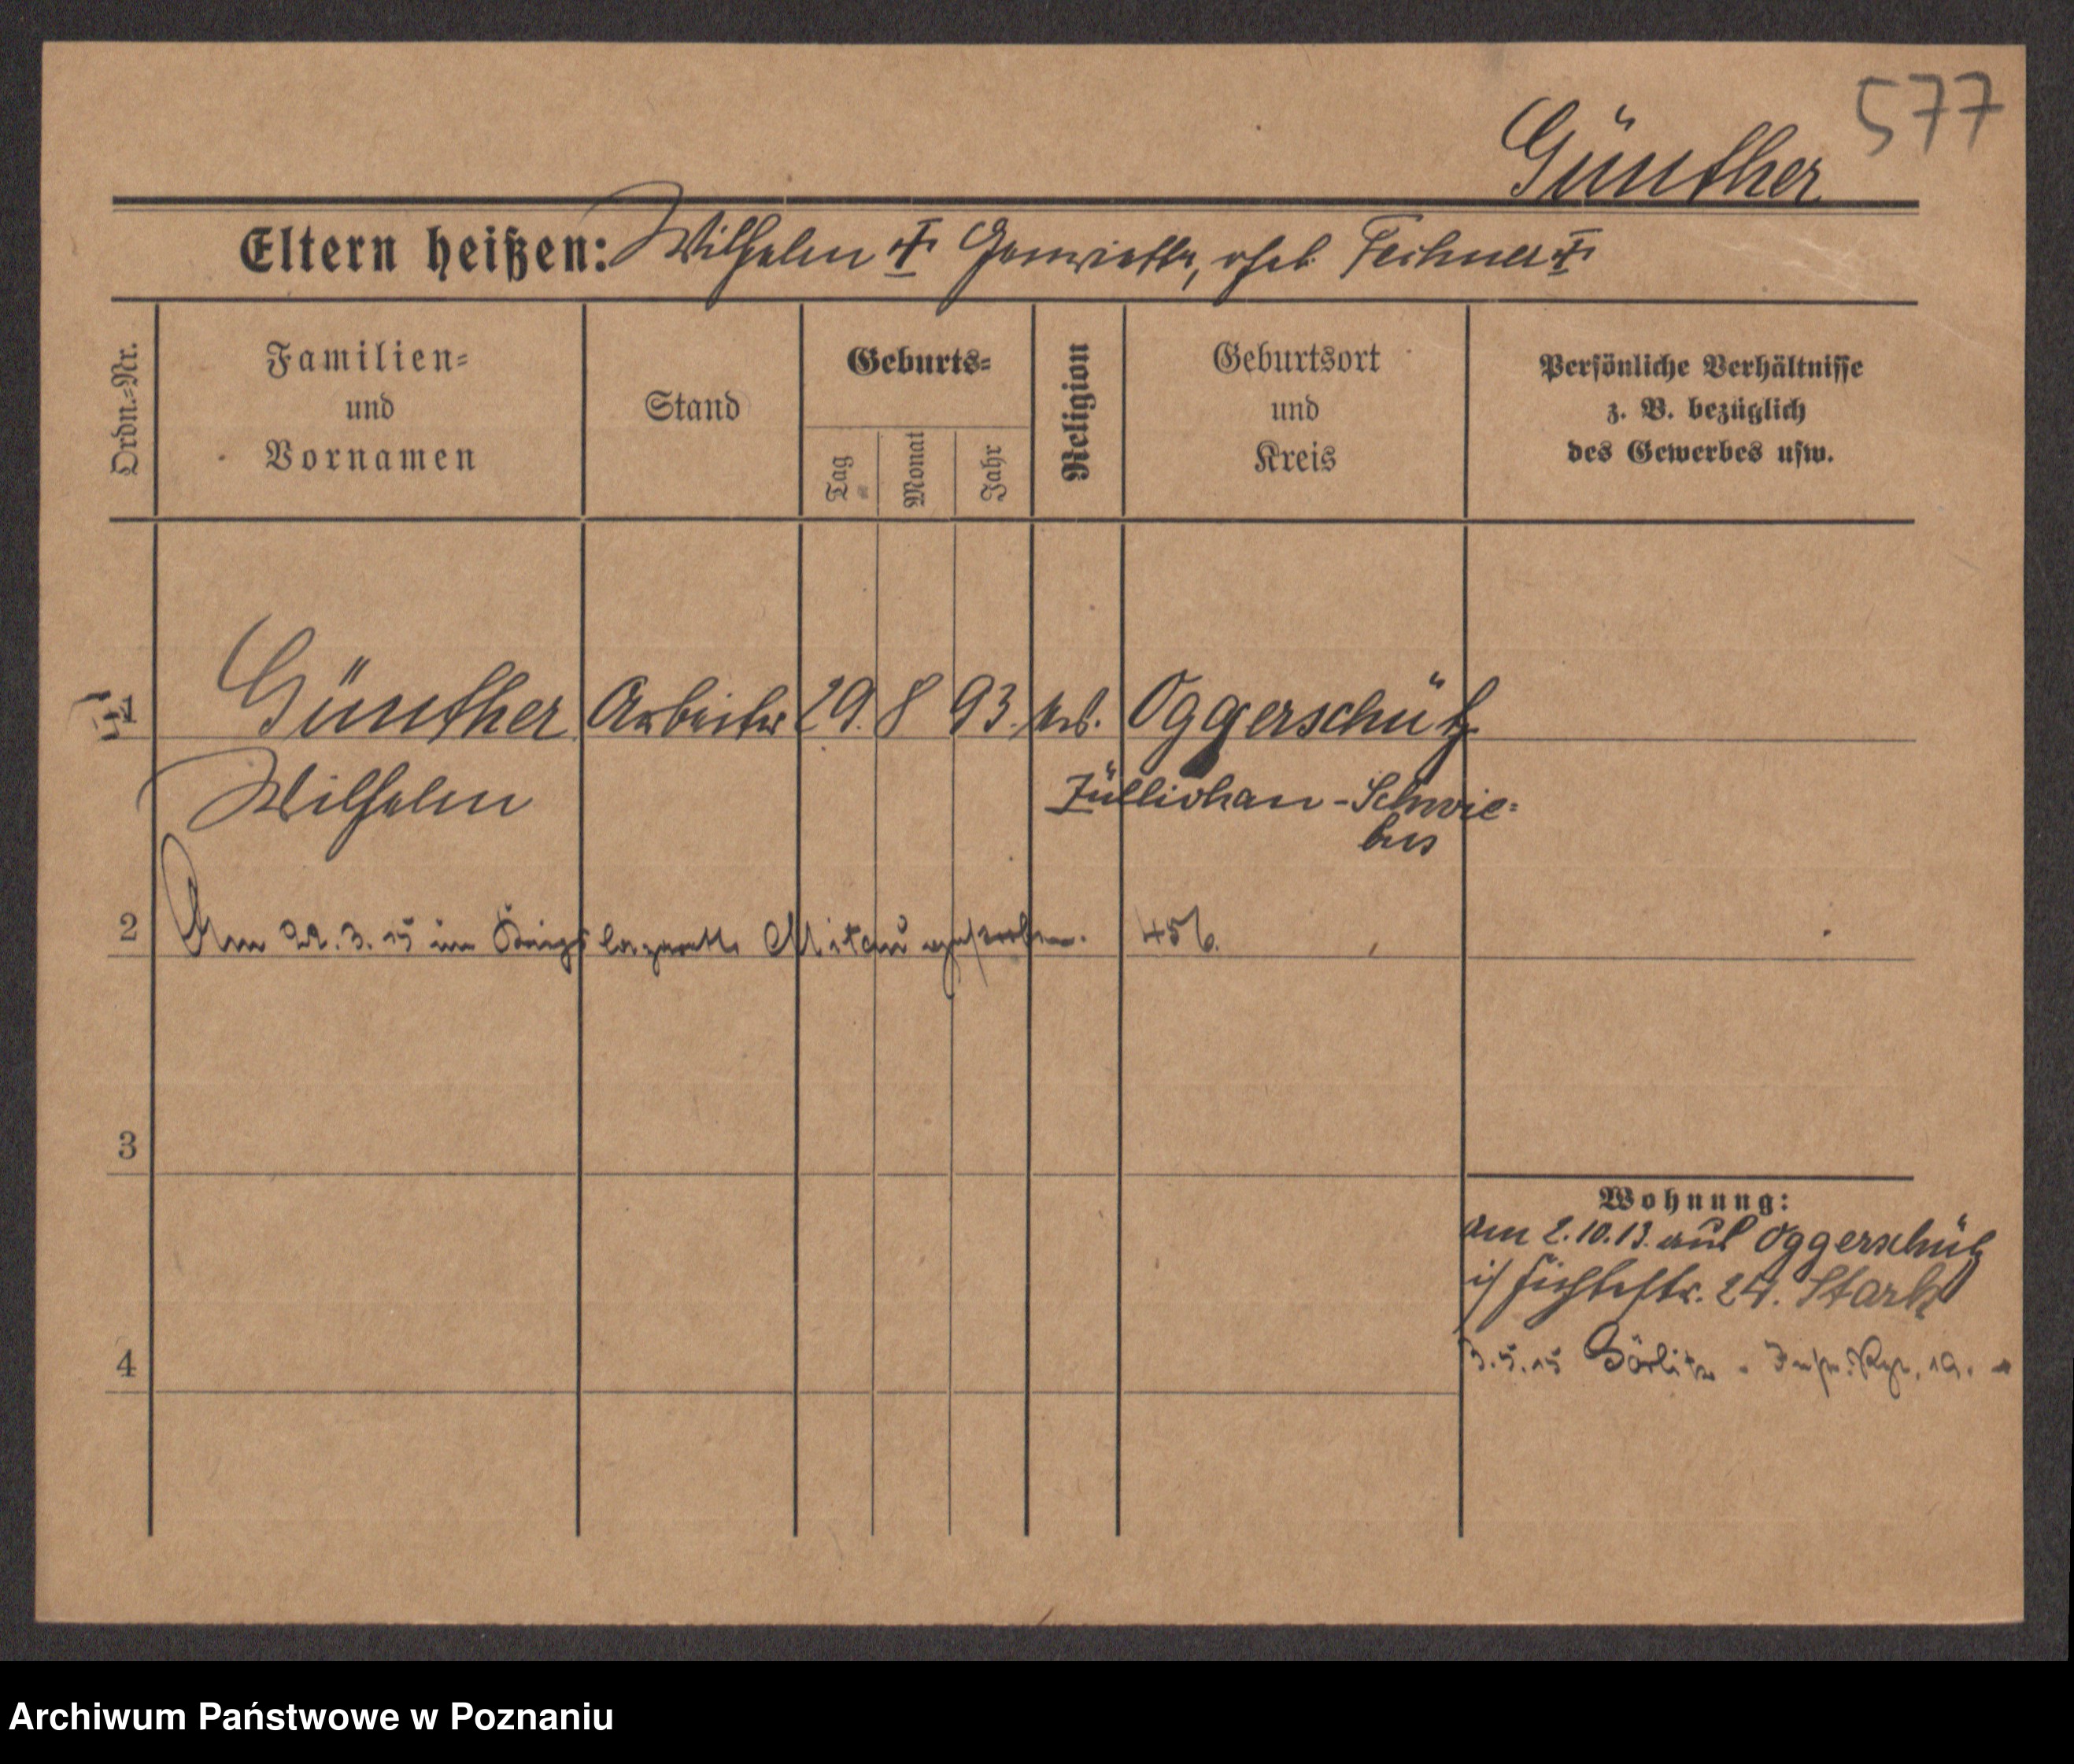 577
Günther
Eltern heißen: Wilhelm † Henriette, geb. Fechner †
Ordn.=Nr.
Familien=
und
Vornamen
Stand
Geburts=
Tag
Monat
Jahr
Religion
Geburtsort
und
Kreis
Persönliche Verhältnisse
z. B. bezüglich
des Gewerbes usw.
1 Günther Arbeiter 29. 8 93. Oggerschütz
Wilhelm Züllichau - Schwie=
bus
2 Am 22.3.15 im Kriegslazarett Mitau gestorben. 456.
3
Wohnung:
am 2.10.13. aus Oggerschütz
Fichtestr. 24. Stark
4
3.5.15 Görlitz - Inf. Rgt. 19.
Archiwum Państwowe w Poznaniu